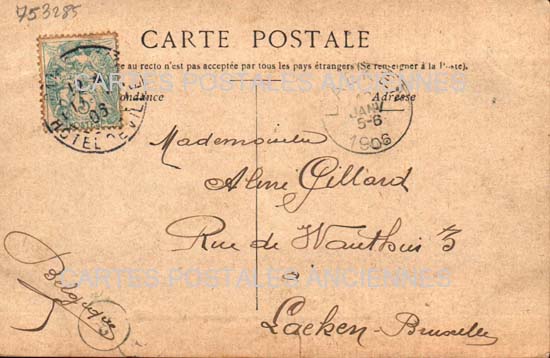 753285
CARTE POSTALE
ge au recto n'est pas acceptée par tous les pays étrangers (Se renseigner à la Poste).
CARTES POSTALES ANCIENNES
ondance
Adresse
06
HOTEL DE VILLE
JANV
5-6
1906
Mademoiselle
Aline Gillard
Rue de Wauthier 3
à
Laeken-Bruxelles
Belgique
CARTES POSTALES ANCIENNES